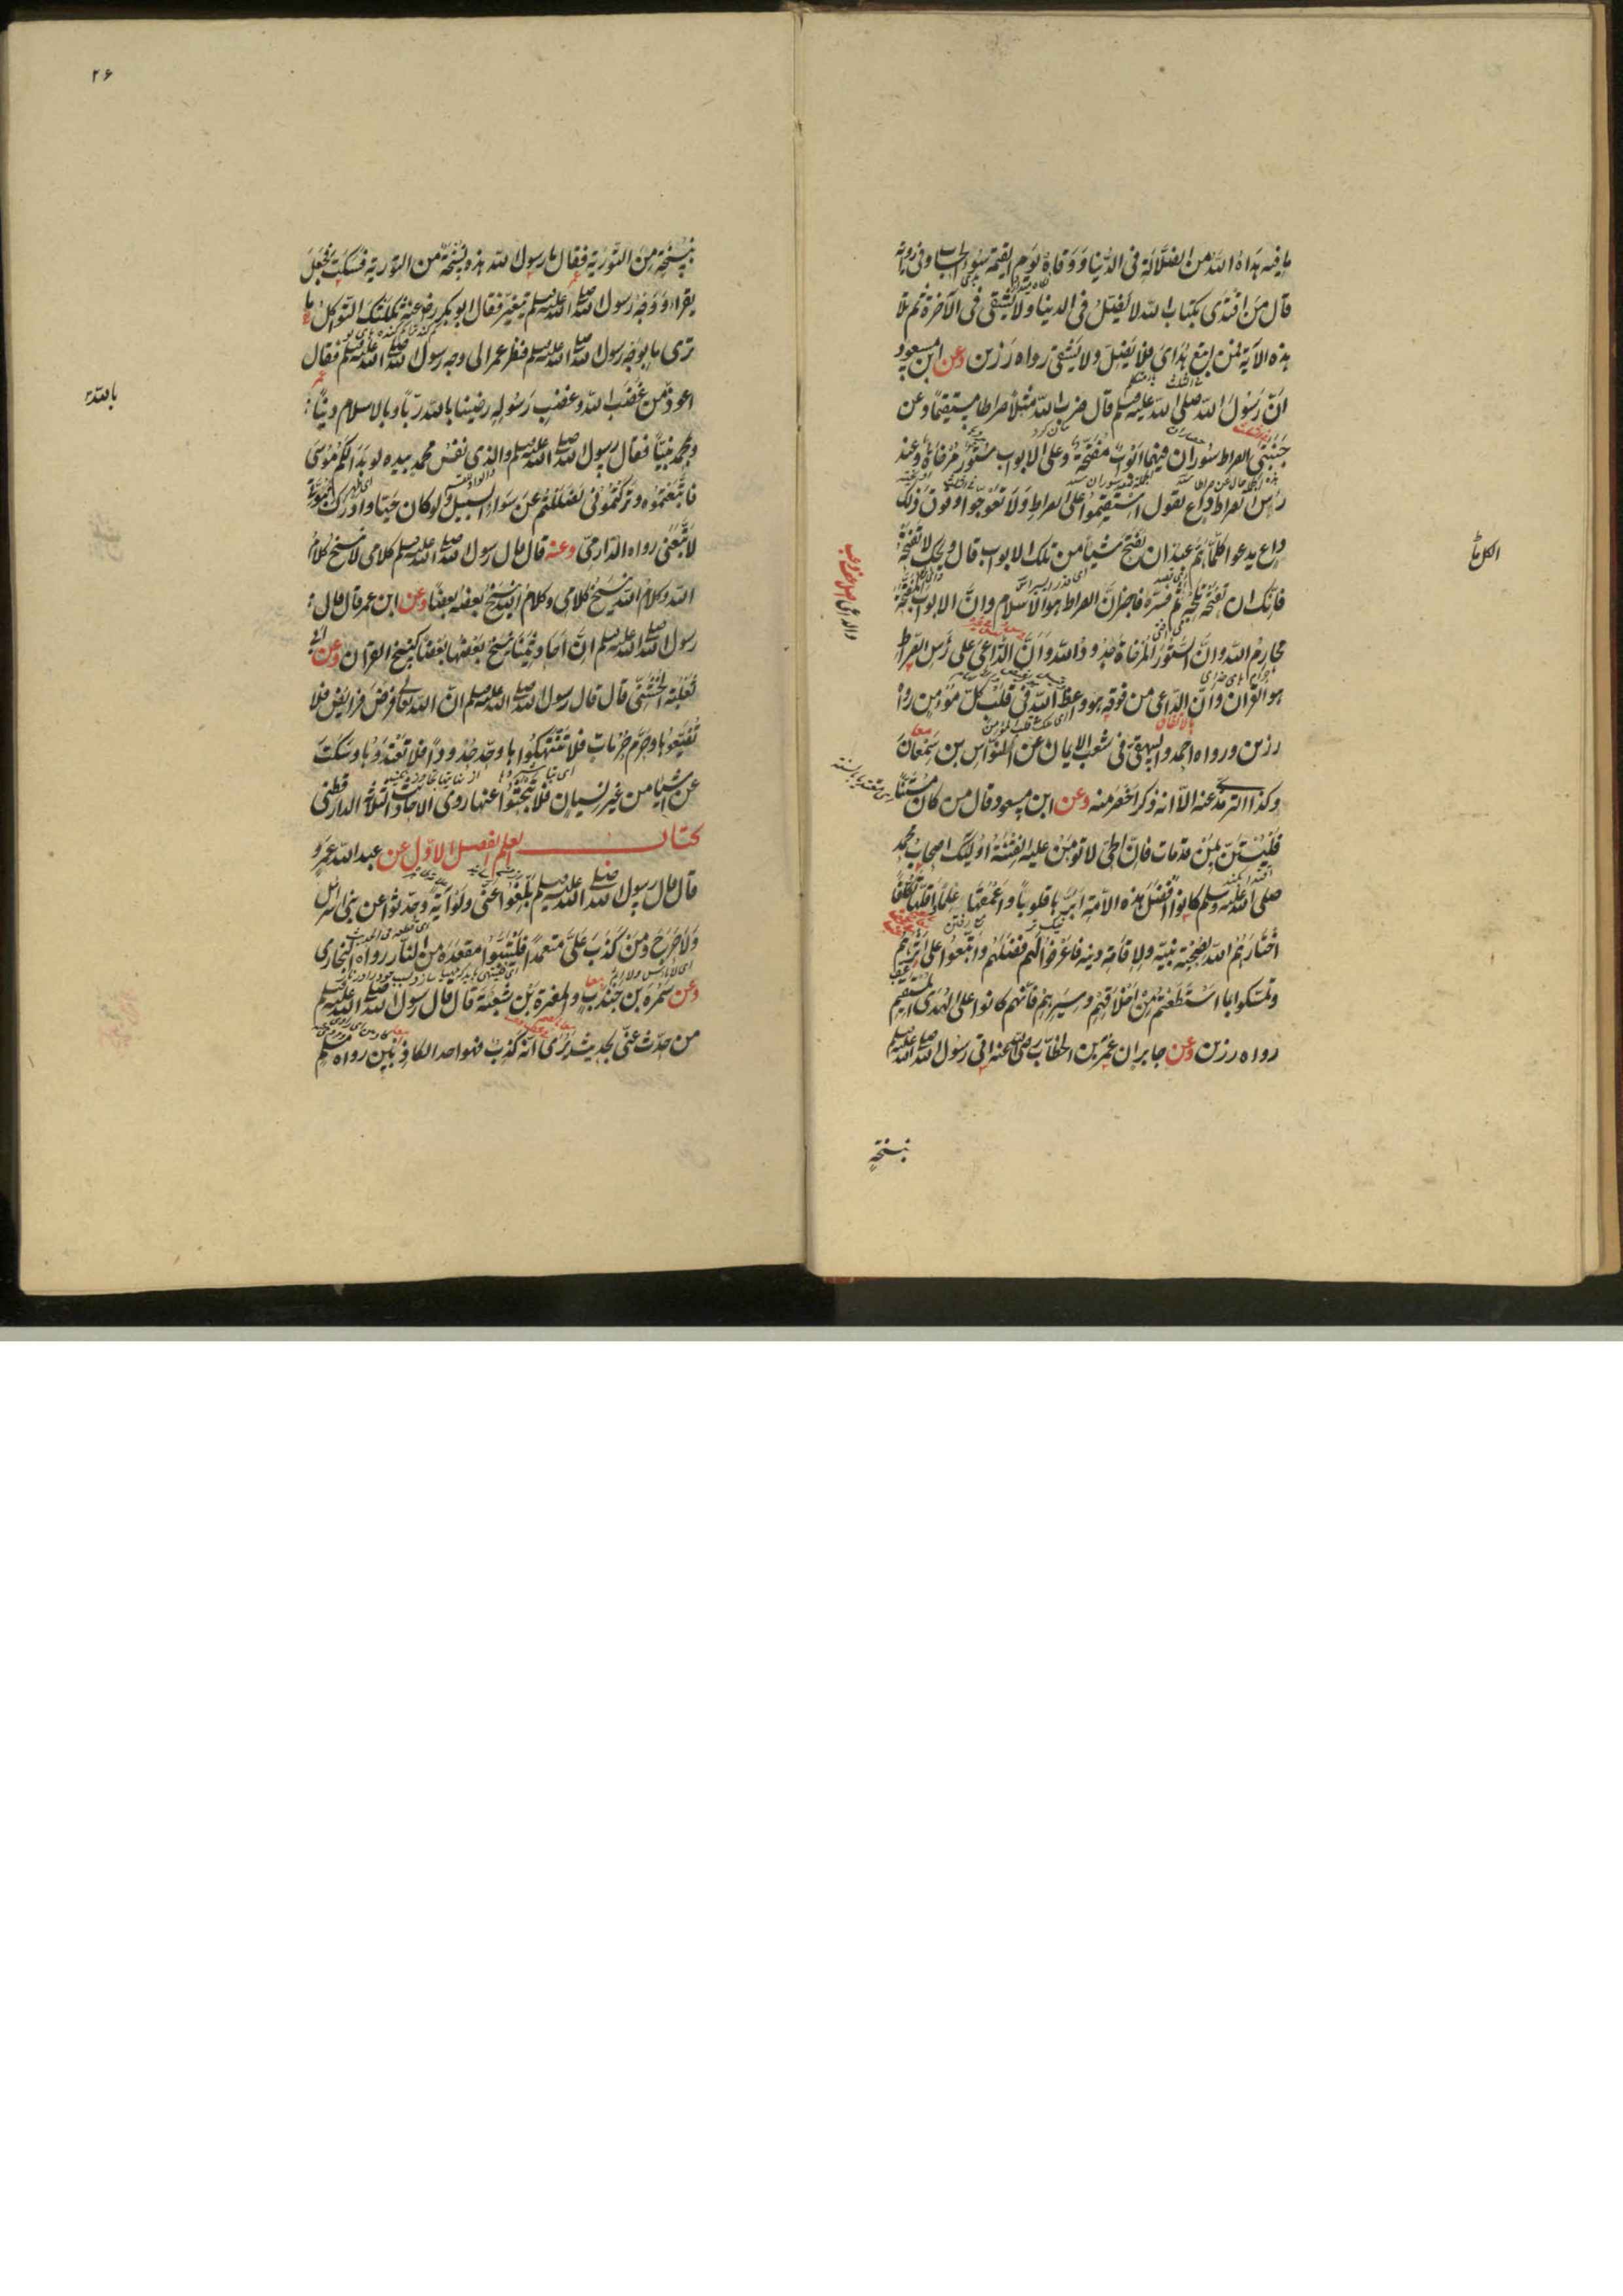 ما فيه هداه الله من الضلالة فى الدنيا ووقاه يوم القيمة سوء الحساب وفى رواية
قال من اقتدى بكتاب الله لا يضل فى الدنيا ولا يشقى فى الآخرة ثم تلا
هذه الآية فمن اتبع هداى فلا يضل ولا يشقى رواه رزين وعن ابن مسعود
ان رسول الله صلى الله عليه وسلم قال ضرب الله مثلا صراطا مستقيما وعن
جنبتى الصراط سوران فيهما ابواب مفتحة وعلى الابواب ستور مرخاة وعند
رأس الصراط داع يقول استقيموا على الصراط ولا تعوجوا وفوق ذلك
داع يدعو كلما هم عبد ان يفتح شيأ من تلك الابواب قال ويحك لا تفتحه
فانك ان تفتحه تلجه ثم فسره فاخبر ان الصراط هو الاسلام وان الابواب المفتحة
محارم الله وان الستور المرخاة حدود الله وان الداعى على رأس الصراط
هو القرآن وان الداعى من فوقه هو واعظ الله فى قلب كل مؤمن رواه
رزين ورواه احمد والبيهقى فى شعب الايمان عن النواس بن سمعان
وكذا الترمذى عنه الا انه ذكر اخصر منه وعن ابن مسعود قال من كان مستنا
فليستن بمن قد مات فان الحى لا تؤمن عليه الفتنة اولئك اصحاب محمد
صلى الله عليه وسلم كانوا افضل هذه الامة ابرها قلوبا واعمقها علما واقلها تكلفا
اختارهم الله لصحبة نبيه ولاقامة دينه فاعرفوا لهم فضلهم واتبعوا على اثرهم
وتمسكوا بما استطعتم من اخلاقهم وسيرهم فانهم كانوا على الهدى المستقيم
رواه رزين وعن جابر ان عمر بن الخطاب رضى الله عنه اتى رسول الله صلى الله عليه
بنسخة
٢۶
بنسخة من التورية فقال يا رسول الله هذه نسخة من التورية فسكت فجعل
يقرأ ووجه رسول الله صلى الله عليه وسلم يتغير فقال ابو بكر رضى عنه ثكلتك الثواكل ما
ترى ما بوجه رسول الله صلى الله عليه وسلم فنظر عمر الى وجه رسول الله صلى الله عليه وسلم فقال
اعوذ من غضب الله وغضب رسوله رضينا بالله ربا وبالاسلام دينا
بالله
وبمحمد نبيا فقال رسول الله صلى الله عليه وسلم والذى نفس محمد بيده لو بدا لكم موسى
فاتبعتموه وتركتمونى لضللتم عن سواء السبيل ولو كان حيا وادرك نبوتى
لاتبعنى رواه الدارمى وعنه قال قال رسول الله صلى الله عليه وسلم كلامى لا ينسخ كلام
الله وكلام الله ينسخ كلامى وكلام الله ينسخ بعضه بعضا وعن ابن عمر قال قال
رسول الله صلى الله عليه وسلم ان احاديثنا ينسخ بعضها بعضا كنسخ القرآن وعن ابى
ثعلبة الخشنى قال قال رسول الله صلى الله عليه وسلم ان الله تعالى فرض فرايض فلا
تضيعوها وحرم حرمات فلا تنتهكوها وحد حدودا فلا تعتدوها وسكت
عن اشيا من غير نسيان فلا تبحثوا عنها روى الاحاديث الثلاثة الدارقطنى
كتاب العلم الفصل الاول عن عبد الله عمرو
قال قال رسول الله صلى الله عليه وسلم بلغوا عنى ولو آية وحدثوا عن بنى اسرائيل
ولا حرج ومن كذب على متعمدا فليتبوأ مقعده من النار رواه البخارى
وعن سمرة بن جندب والمغيرة بن شعبة قال قال رسول الله صلى الله عليه وسلم
من حدث عنى بحديث يرى انه كذب فهو احد الكاذبين رواه مسلم